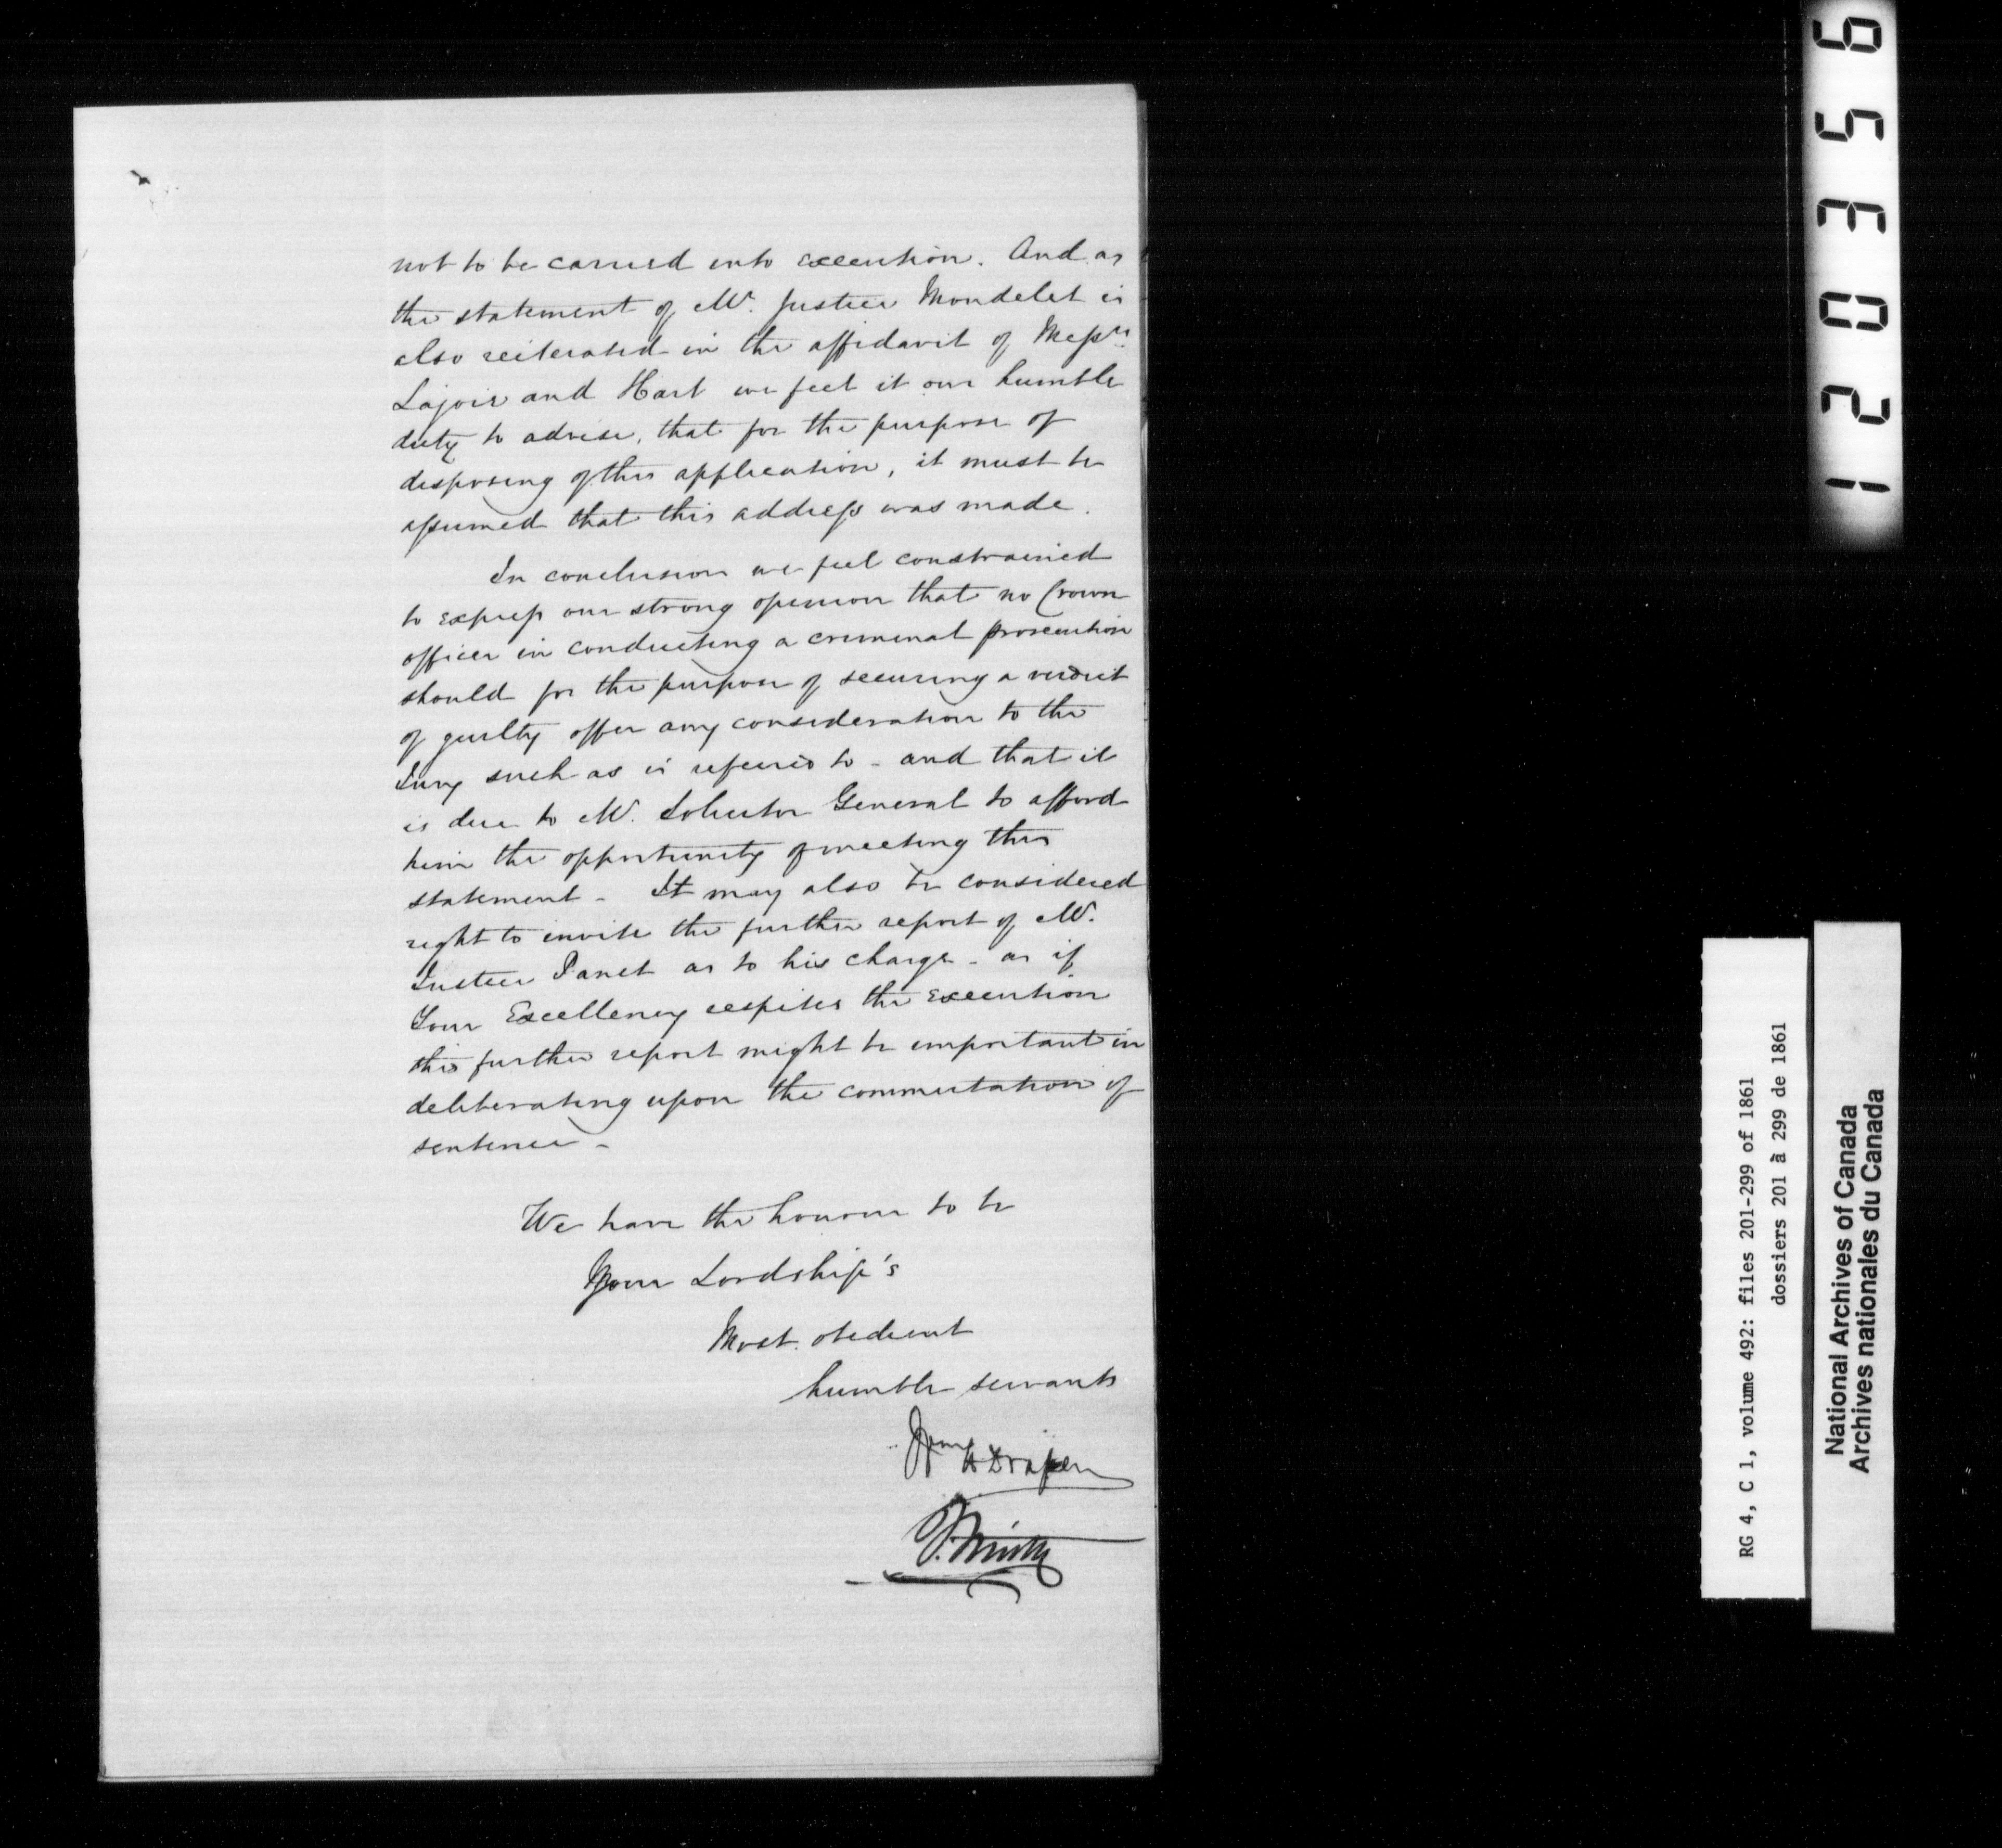 not to be carried into execution. And as
the statement of Mr. Justice Mondelet is
also reiterated in the affidavit of Messrs.
Lajoie and Hart we feel it our humble
duty to advise, that for the purpose of
disposing of this application, it must be
assumed that this address was made.
In conclusion we feel constrained
to express our strong opinion that no Crown
officer in conducting a criminal prosecution
should for the purpose of securing a verdict
of guilty offer any consideration to the
Jury such as is referred to - and that it
is due to Mr. Solicitor General to afford
him the opportunity of meeting this
statement - It may also be considered
right to invite the further report of Mr.
Justice Panet as to his charge - as if
Your Excellency respites the execution
this further report might be important in
deliberating upon the commutation of
sentence -
We have the honour to be
Your Lordship's
Most obedient
humble servants
Wm H Draper
120359
RG 4, C 1, volume 492: files 201-299 of 1861
dossiers 201 à 299 de 1861
National Archives of Canada
Archives nationales du Canada